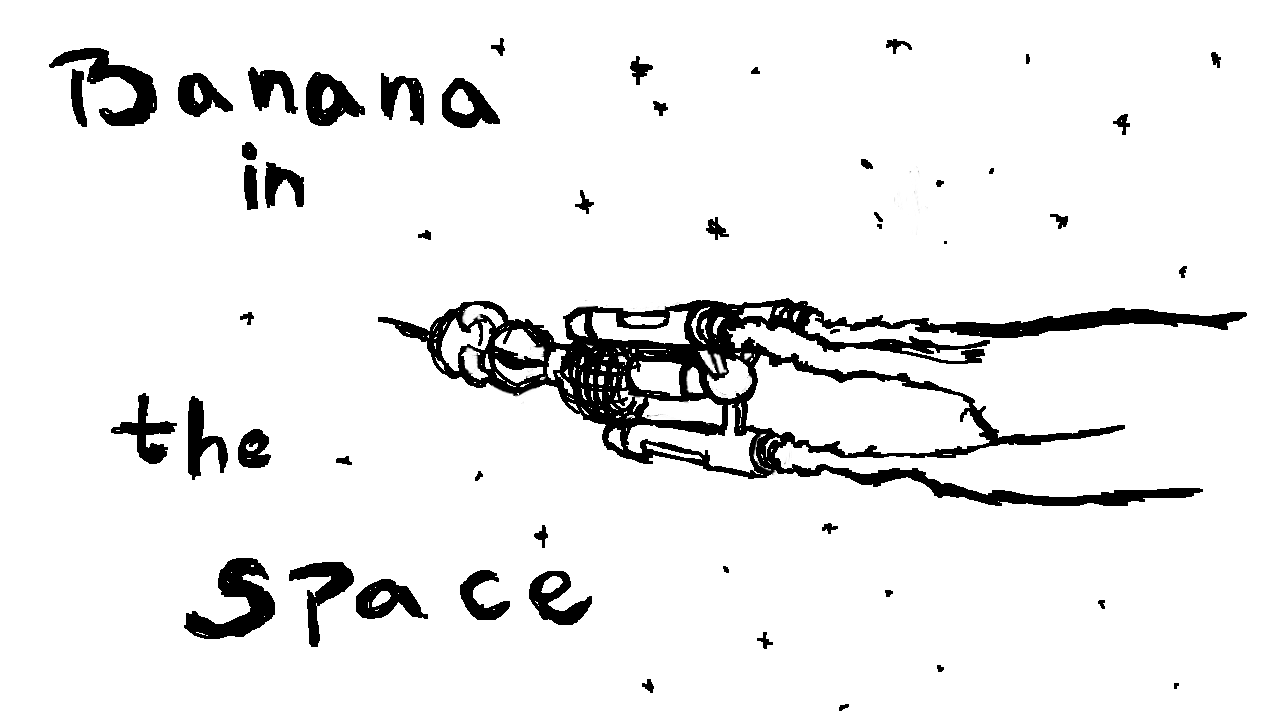 Banana
in
the
space